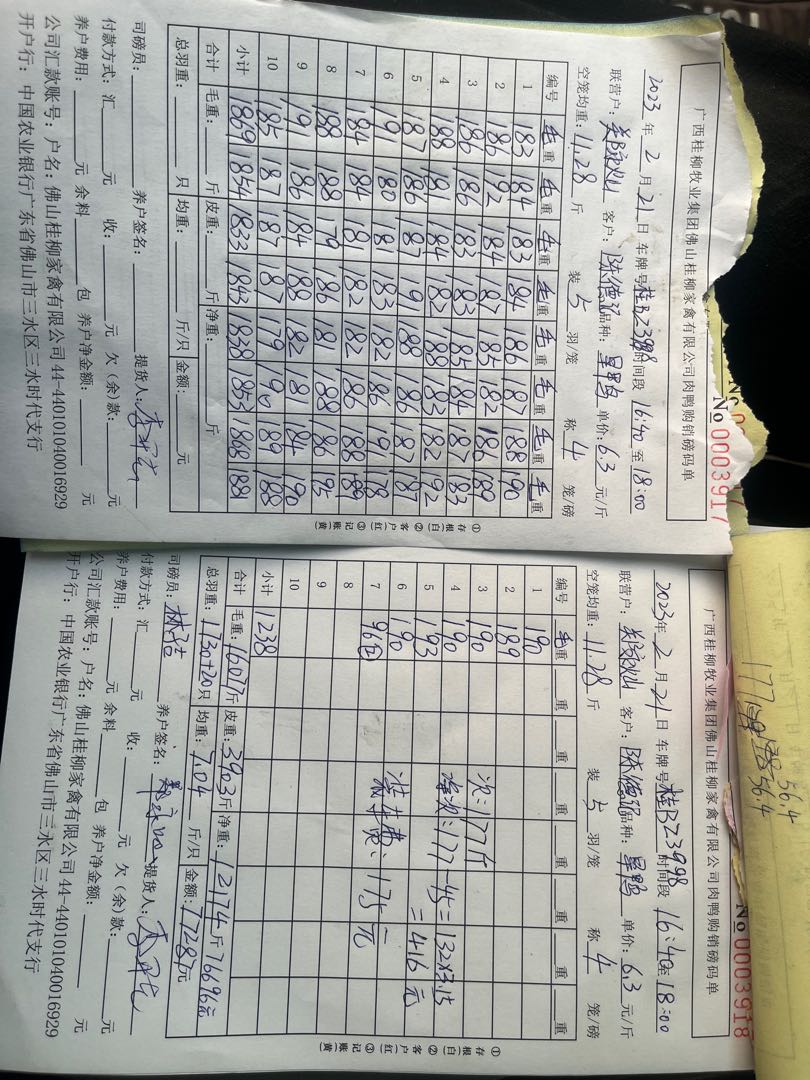 广西桂柳牧业集团佛山桂柳家禽有限公司肉鸭购销磅码单
No 0003917
2023 年 2 月 21 日 车牌号 桂BZ3998 时间段 16:40 至 18:00
联营户: 客户: 陈德 品种: 单价: 6.3 元/斤
空笼均重: 11.28 斤 装 5 羽/笼 称 4 笼/磅
编号 毛重 毛重 毛重 毛重 毛重 毛重 毛重 毛重
1 183 184 183 184 186 187 188 190
2 186 192 184 187 185 182 186 189
3 186 186 183 183 185 184 187 183
4 188 181 184 182 188 183 182 192
5 187 186 187 191 188 186 187 187
6 191 180 181 183 182 186 191 178
7 184 184 181 182 182 186 188 189
8 188 188 179 186 181 188 186 195
9 191 186 184 188 182 181 184 190
10 185 187 187 187 179 190 189 188
小计 1869 1854 1833 1843 1838 1853 1868 1881
合计 毛重: 斤 皮重: 斤 净重: 斤
总羽重: 只 均重: 斤/只 金额: 元
司磅员: 养户签名: 提货人:
付款方式: 汇 元 收: 元 欠(余)款: 元
养户费用: 元 余料 包 养户净金额: 元
公司汇款账号: 户名: 佛山桂柳家禽有限公司 44-440101040016929
开户行: 中国农业银行广东省佛山市三水区三水时代支行
①存根(白) ②客户(红) ③记账(黄)
177 56.4
56.4
广西桂柳牧业集团佛山桂柳家禽有限公司肉鸭购销磅码单
No 0003918
2023 年 2 月 21 日 车牌号 桂BZ3998 时间段 16:40 至 18:00
联营户: 客户: 陈德 品种: 单价: 6.3 元/斤
空笼均重: 11.28 斤 装 5 羽/笼 称 4 笼/磅
编号 毛重 重 重 重 重 重 重 重
1 190
2 189
3 190
4 190
5 193
6 190
7 96
8
9
10
次: 177斤
177-45=132×3.15
=416 元
费: 175元
小计 1238
合计 毛重: 16077 斤 皮重: 3903 斤 净重: 12174 斤 76696元
总羽重: 1730+20 只 均重: 7.04 斤/只 金额: 元
司磅员: 林 养户签名: 提货人:
付款方式: 汇 元 收: 元 欠(余)款: 元
养户费用: 元 余料 包 养户净金额: 元
公司汇款账号: 户名: 佛山桂柳家禽有限公司 44-440101040016929
开户行: 中国农业银行广东省佛山市三水区三水时代支行
①存根(白) ②客户(红) ③记账(黄)